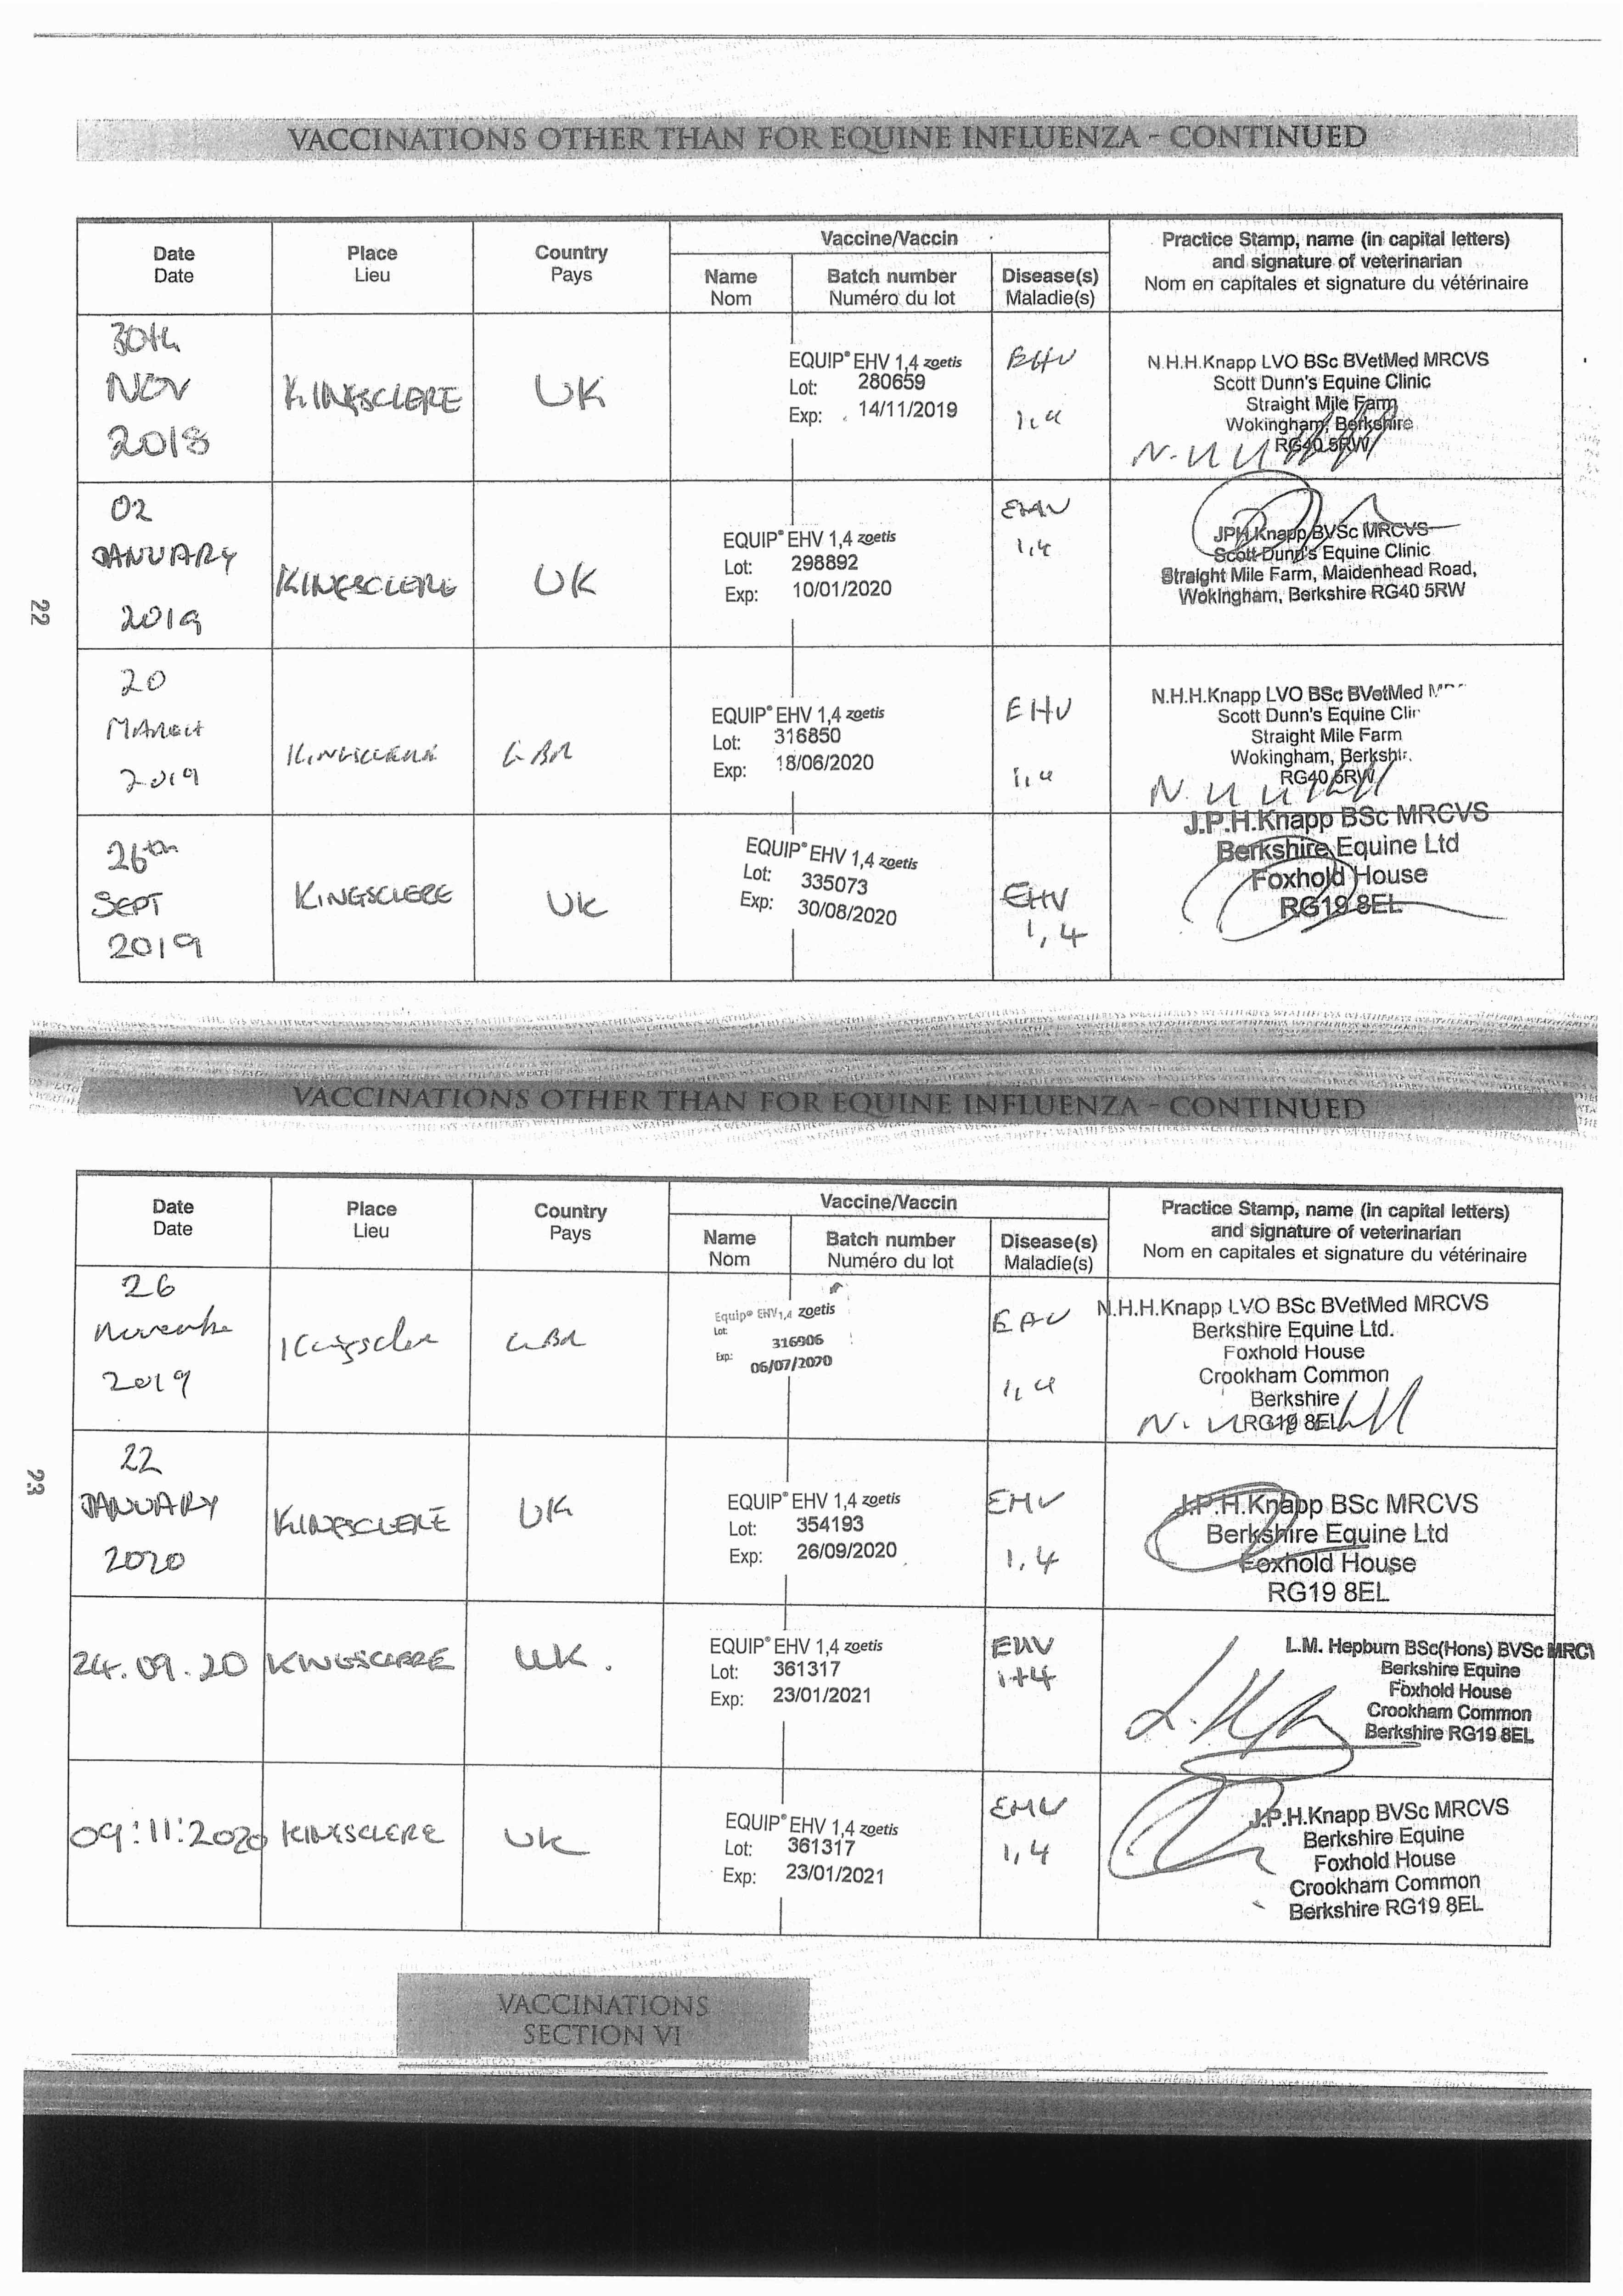 VACCINATIONS OTHER THAN FOR EQUINE INFLUENZA - CONTINUED
Date
Date
Place
Lieu
Country
Pays
Vaccine/Vaccin
Name
Nom
Batch number
Numéro du lot
Disease(s)
Maladie(s)
Practice Stamp, name (in capital letters)
and signature of veterinarian
Nom en capitales et signature du vétérinaire
30th
NOV
2018
KINGSCLERE
UK
EQUIP® EHV 1,4 zoetis
Lot: 280659
Exp: 14/11/2019
EHV
1,4
N.H.H.Knapp LVO BSc BVetMed MRCVS
Scott Dunn's Equine Clinic
Straight Mile Farm
Wokingham, Berkshire
RG40 5RW
02
JANUARY
2019
KINGSCLERE
UK
EQUIP® EHV 1,4 zoetis
Lot: 298892
Exp: 10/01/2020
EHV
1,4
JPH Knapp BVSc MRCVS
Scott Dunn's Equine Clinic
Straight Mile Farm, Maidenhead Road,
Wokingham, Berkshire RG40 5RW
20
MARCH
2019
KINGSCLERE
GBR
EQUIP® EHV 1,4 zoetis
Lot: 316850
Exp: 18/06/2020
EHV
1,4
N.H.H.Knapp LVO BSc BVetMed
Scott Dunn's Equine Clin
Straight Mile Farm
Wokingham, Berkshir
RG40 5RW
26th
SEPT
2019
KINGSCLERE
UK
EQUIP® EHV 1,4 zoetis
Lot: 335073
Exp: 30/08/2020
EHV
1,4
J.P.H.Knapp BSc MRCVS
Berkshire Equine Ltd
Foxhold House
RG19 8EL
22
VACCINATIONS OTHER THAN FOR EQUINE INFLUENZA - CONTINUED
Date
Date
Place
Lieu
Country
Pays
Vaccine/Vaccin
Name
Nom
Batch number
Numéro du lot
Disease(s)
Maladie(s)
Practice Stamp, name (in capital letters)
and signature of veterinarian
Nom en capitales et signature du vétérinaire
26
November
2019
Kingsclere
GBR
Equip® EHV1,4 zoetis
Lot: 316906
Exp: 06/07/2020
EHV
1,4
N.H.H.Knapp LVO BSc BVetMed MRCVS
Berkshire Equine Ltd.
Foxhold House
Crookham Common
Berkshire
RG19 8EL
22
JANUARY
2020
KINGSCLERE
UK
EQUIP® EHV 1,4 zoetis
Lot: 354193
Exp: 26/09/2020
EHV
1,4
J.P.H.Knapp BSc MRCVS
Berkshire Equine Ltd
Foxhold House
RG19 8EL
24.09.20
KINGSCLERE
UK.
EQUIP® EHV 1,4 zoetis
Lot: 361317
Exp: 23/01/2021
EHV
1+4
L.M. Hepburn BSc(Hons) BVSc MRCV
Berkshire Equine
Foxhold House
Crookham Common
Berkshire RG19 8EL
09:11:2020
KINGSCLERE
UK
EQUIP® EHV 1,4 zoetis
Lot: 361317
Exp: 23/01/2021
EHV
1,4
J.P.H.Knapp BVSc MRCVS
Berkshire Equine
Foxhold House
Crookham Common
Berkshire RG19 8EL
23
VACCINATIONS
SECTION VI